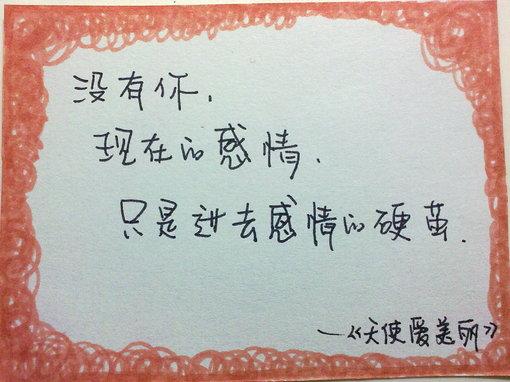 没有你，
现在的感情，
只是过去感情的硬茧.
—《天使爱美丽》